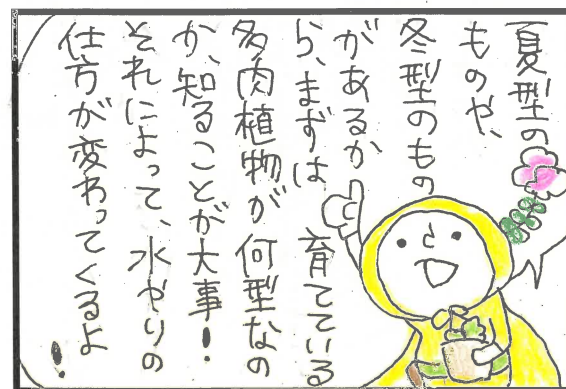 夏型の
ものや、
冬型のもの
があるか
ら、まずは 育てている
多肉植物が 何型なの
か、知ることが大事!
それによって、水やりの
仕方が変わってくるよ!